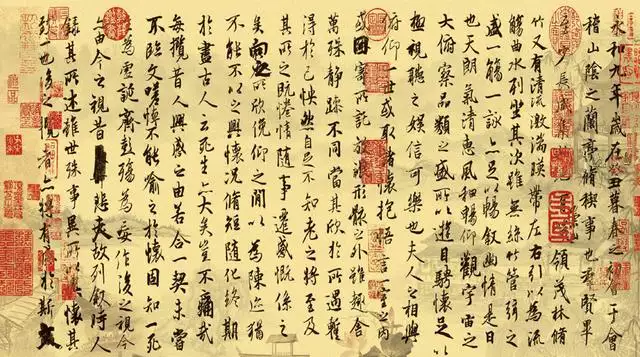 永和九年歲在癸丑暮春之初會于會
稽山陰之蘭亭脩稧事也羣賢畢
至少長咸集領茂林脩
竹又有清流激湍暎帶左右引以為流
觴曲水列坐其次雖無絲竹管弦之
盛一觴一詠亦足以暢敘幽情是日
也天朗氣清惠風和暢仰觀宇宙之
大俯察品類之盛所以遊目騁懷足以
極視聽之娛信可樂也夫人之相與
俯仰一世或取諸懷抱悟言一室之內
或因寄所託放浪形骸之外雖趣舍
萬殊靜躁不同當其欣於所遇蹔
得於己怏然自足不知老之將至及
其所之既惓情隨事遷感慨係之
矣向之所欣俛仰之閒以為陳迹猶
不能不以之興懷況脩短隨化終期
於盡古人云死生亦大矣豈不痛哉
每攬昔人興感之由若合一契未嘗
不臨文嗟悼不能喻之於懷固知一死
生為虛誕齊彭殤為妄作後之視今
亦由今之視昔悲夫故列敘時人
錄其所述雖世殊事異所以興懷其
致一也後之攬者亦將有感於斯文